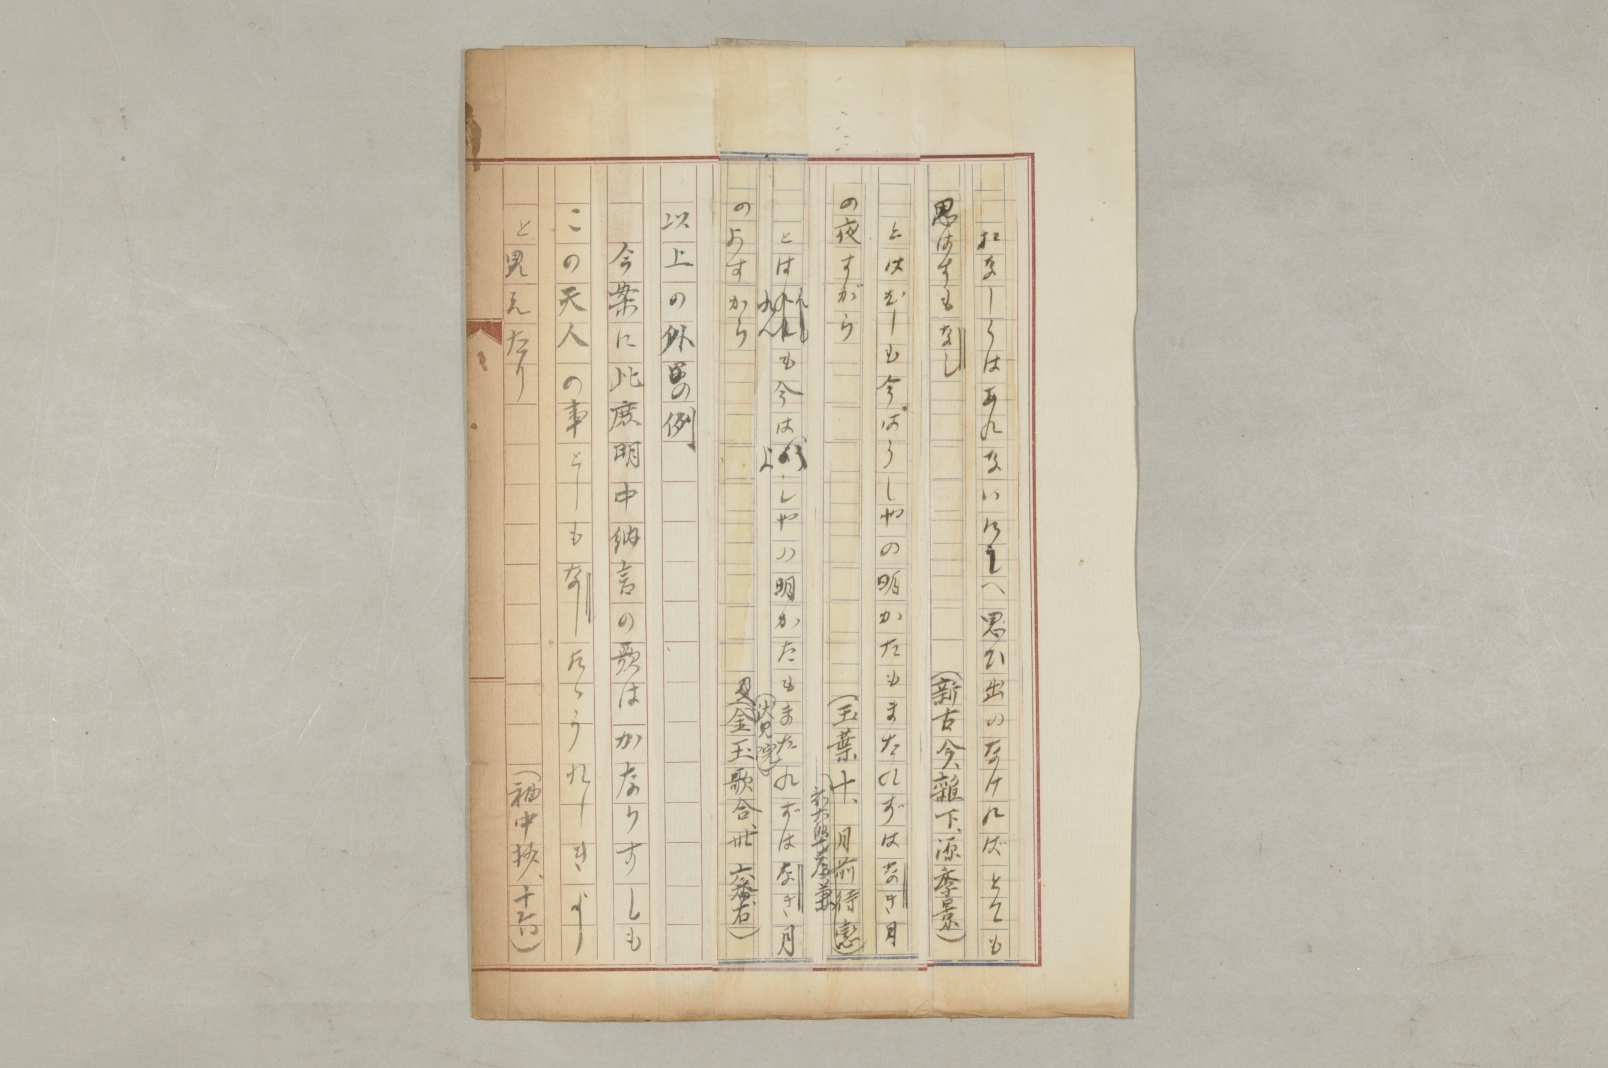 おなしくはあれないにしへ思ひ出のなければとても
思はずもなし (新古今、雜下、源季景)
とはむしも今はうしやの明かたもまたれずはなき月
の夜すがら (玉葉十、月前待戀)
とはれんも今はよしやの明かたもまたれずはなき月
のよすから (伏見院)(金玉歌合、卅六番右)
以上の外の例、
今案に此度明中納言の歌はかなりすしも
この天人の事としもなしたゝうれしきより
と見えたり (袖中抄、十六)